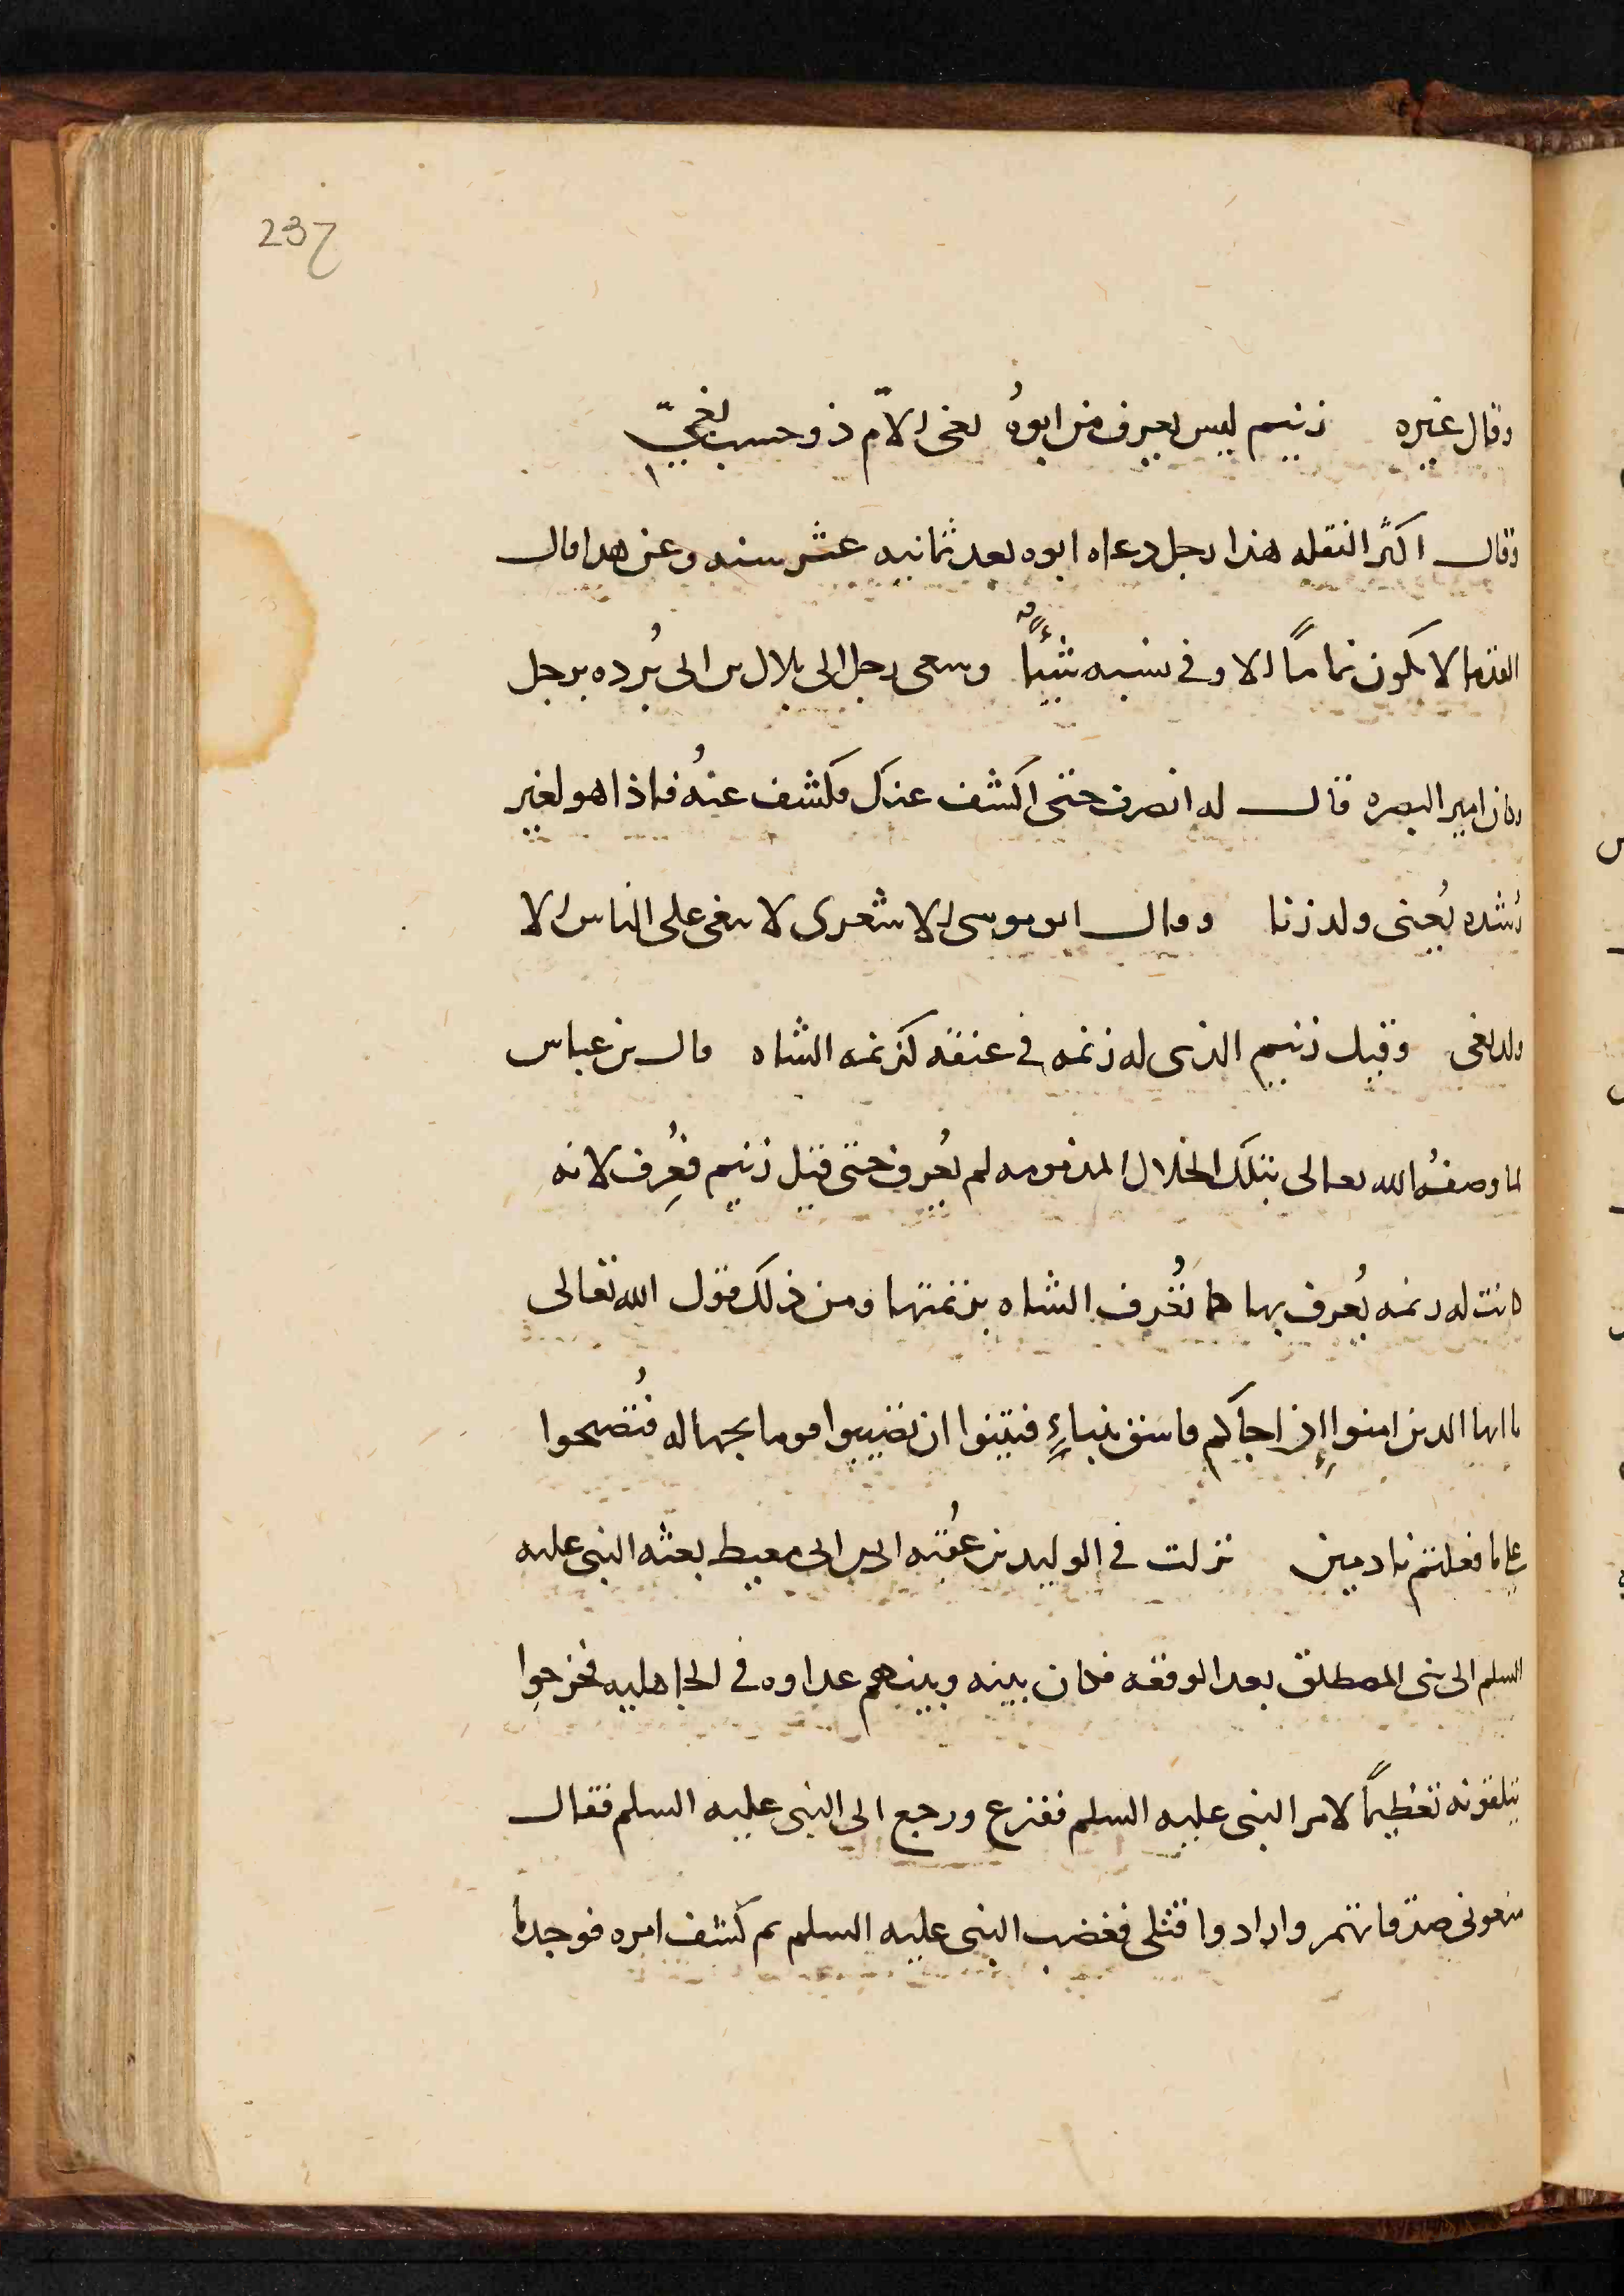 237
وقال غيره زنيم ليس يعرف من ابوهُ بغى الامّ ذو حسب لغيّ
وقال اكثر النقله هذا رجل دعاه ابوه بعد ثمانيه عشر سنه وعن هدا قال
القدما لا يكون نماماً الا وفى نسبه شيئاً وسعى رجل الى بلال بن ابى بُرده برجل
وكان امير البصره قال له انصرف حتى اكشف عنك فكشف عنهُ فاذا هو لغير
رُشده يُعنى ولد زنا وقال ابو موسى الاشعرى لا يبغى على الناس الا
ولد بغى وقيل زنيم الذى له زنمه فى عنقه كزنمه الشاه قال بن عباس
لما وصفهُ الله تعالى بتلك الخلال المذمومه لم يُعرف حتى قيل زنيم فعُرِف لانه
كانت له زنمه يُعرف بها كما تُعرف الشاه بزنمتها ومن ذلك قول الله تعالى
يا ايها الدين امنوا إذ اجاكم فاسق بنباءٍ فتبينوا ان تصيبوا قوما بجهاله فتُصبحوا
على ما فعلتم نادمين نزلت فى الوليد بن عُقبه ابن ابى معيط بعثه النبى عليه
السلم الى بنى المصطلق بعد الوقعه فكان بينه وبينهم عداوه فى الجاهليه فخرجوا
يتلقونه تعظيماً لامر النبى عليه السلم ففزع ورجع الى النبى عليه السلم فقال
منعونى صدقاتهم وارادوا قتلى فغضب النبى عليه السلم ثم كشف امره فوجد ما